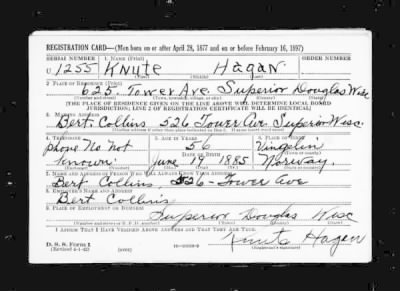 REGISTRATION CARD—(Men born on or after April 28, 1877 and on or before February 16, 1897)
SERIAL NUMBER 1. NAME (Print) ORDER NUMBER
U 1255 Knute Hagan
(First) (Middle) (Last)
2. PLACE OF RESIDENCE (Print)
625. Tower Ave Superior Douglas Wisc
[THE PLACE OF RESIDENCE GIVEN ON THE LINE ABOVE WILL DETERMINE LOCAL BOARD
JURISDICTION; LINE 2 OF REGISTRATION CERTIFICATE WILL BE IDENTICAL]
3. MAILING ADDRESS
Bert Collins 526 Tower Ave Superior Wisc.
4. TELEPHONE 5. AGE IN YEARS 6. PLACE OF BIRTH
Phone No Not 56 Vingelin
DATE OF BIRTH
known June 19 1885 Norway.
7. NAME AND ADDRESS OF PERSON WHO WILL ALWAYS KNOW YOUR ADDRESS
Bert Collins 526-Tower Ave
8. EMPLOYER'S NAME AND ADDRESS
Bert Collins
9. PLACE OF EMPLOYMENT OR BUSINESS
Superior Douglas Wisc
I AFFIRM THAT I HAVE VERIFIED ABOVE ANSWERS AND THAT THEY ARE TRUE.
D. S. S. Form 1
(Revised 4-1-42) (over)
Knute Hagen